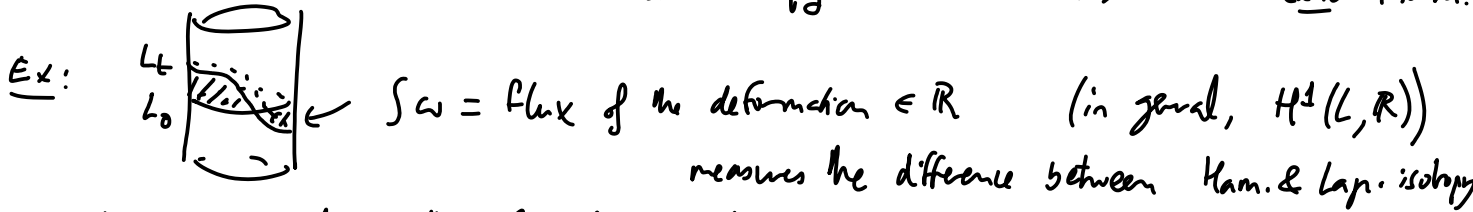 Ex: L_t L_0 ∫ω = flux of the deformation ∈ ℝ (in general, H¹(L,ℝ))
measures the difference between Ham. & Lag. isotopy